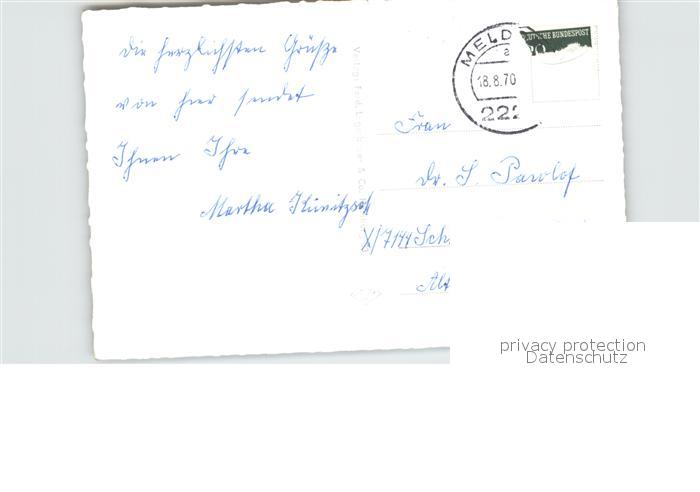 Die herzlichsten Grüße
von hier sendet
Ihnen Ihre
Martha
MELD
a
18.8.70
222
DEUTSCHE BUNDESPOST
Frau
Dr. S. Parolof
X/7144 Sch
Alt
privacy protection
Datenschutz